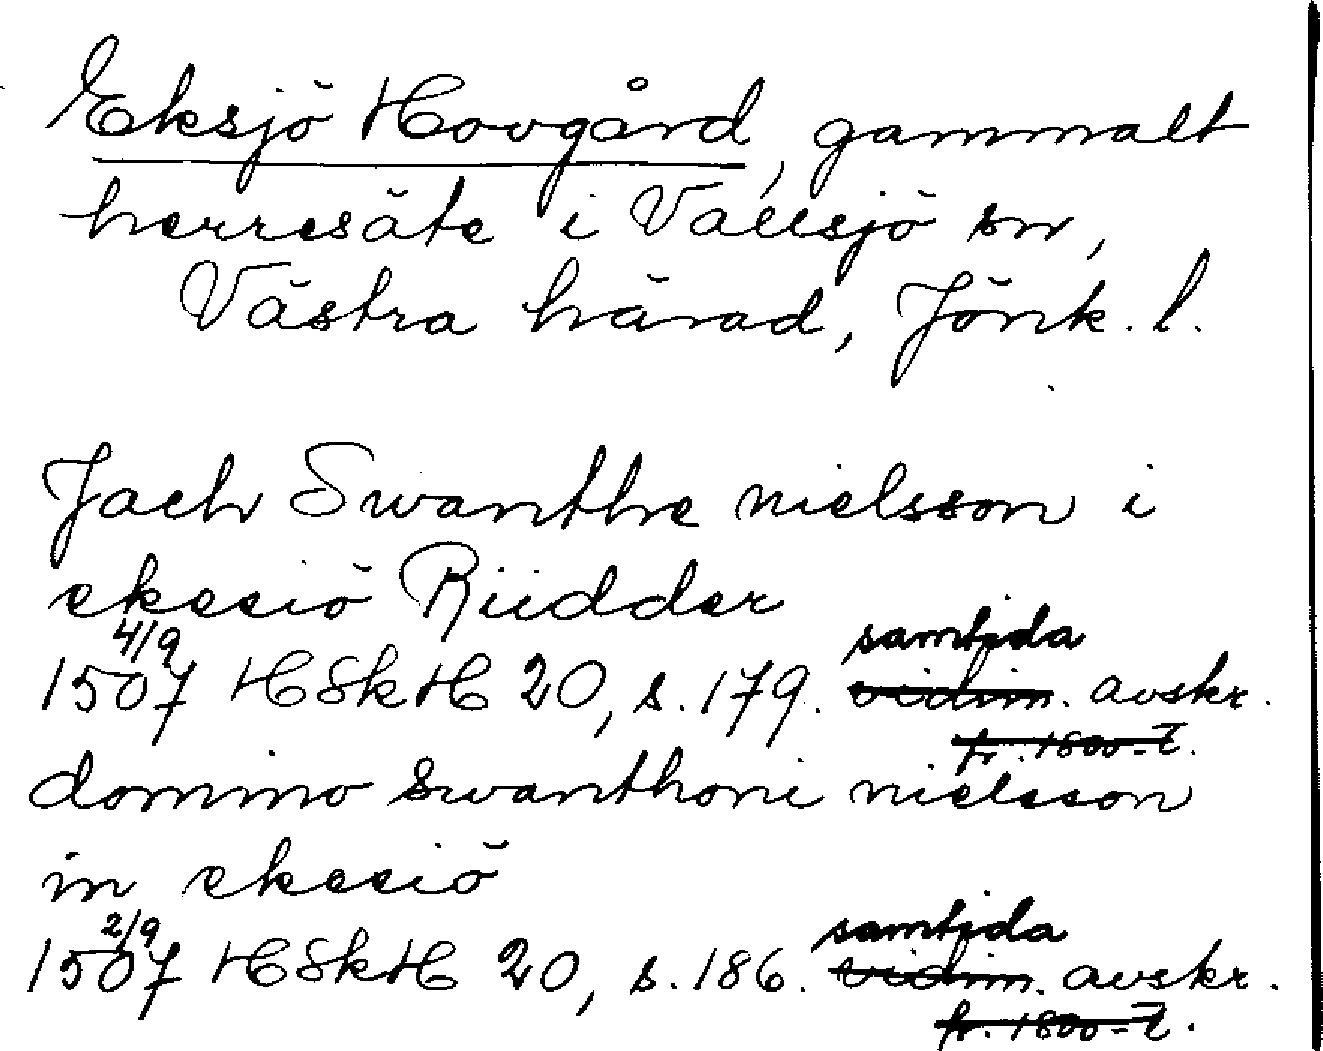 Eksjö Hovgård, gammalt
herresäte i Vallsjö sn,
Västra härad, Jönk. l.
Jach Swanthe nielsson i
ekesiö Riidder
1507 4/9 HSkH 20, s. 179. samtida vidim. avskr.
fr. 1800-t.
domino swanthoni nielsson
in ekesiö
1507 2/9 HSkH 20, s. 186. samtida vidim. avskr.
fr. 1800-t.